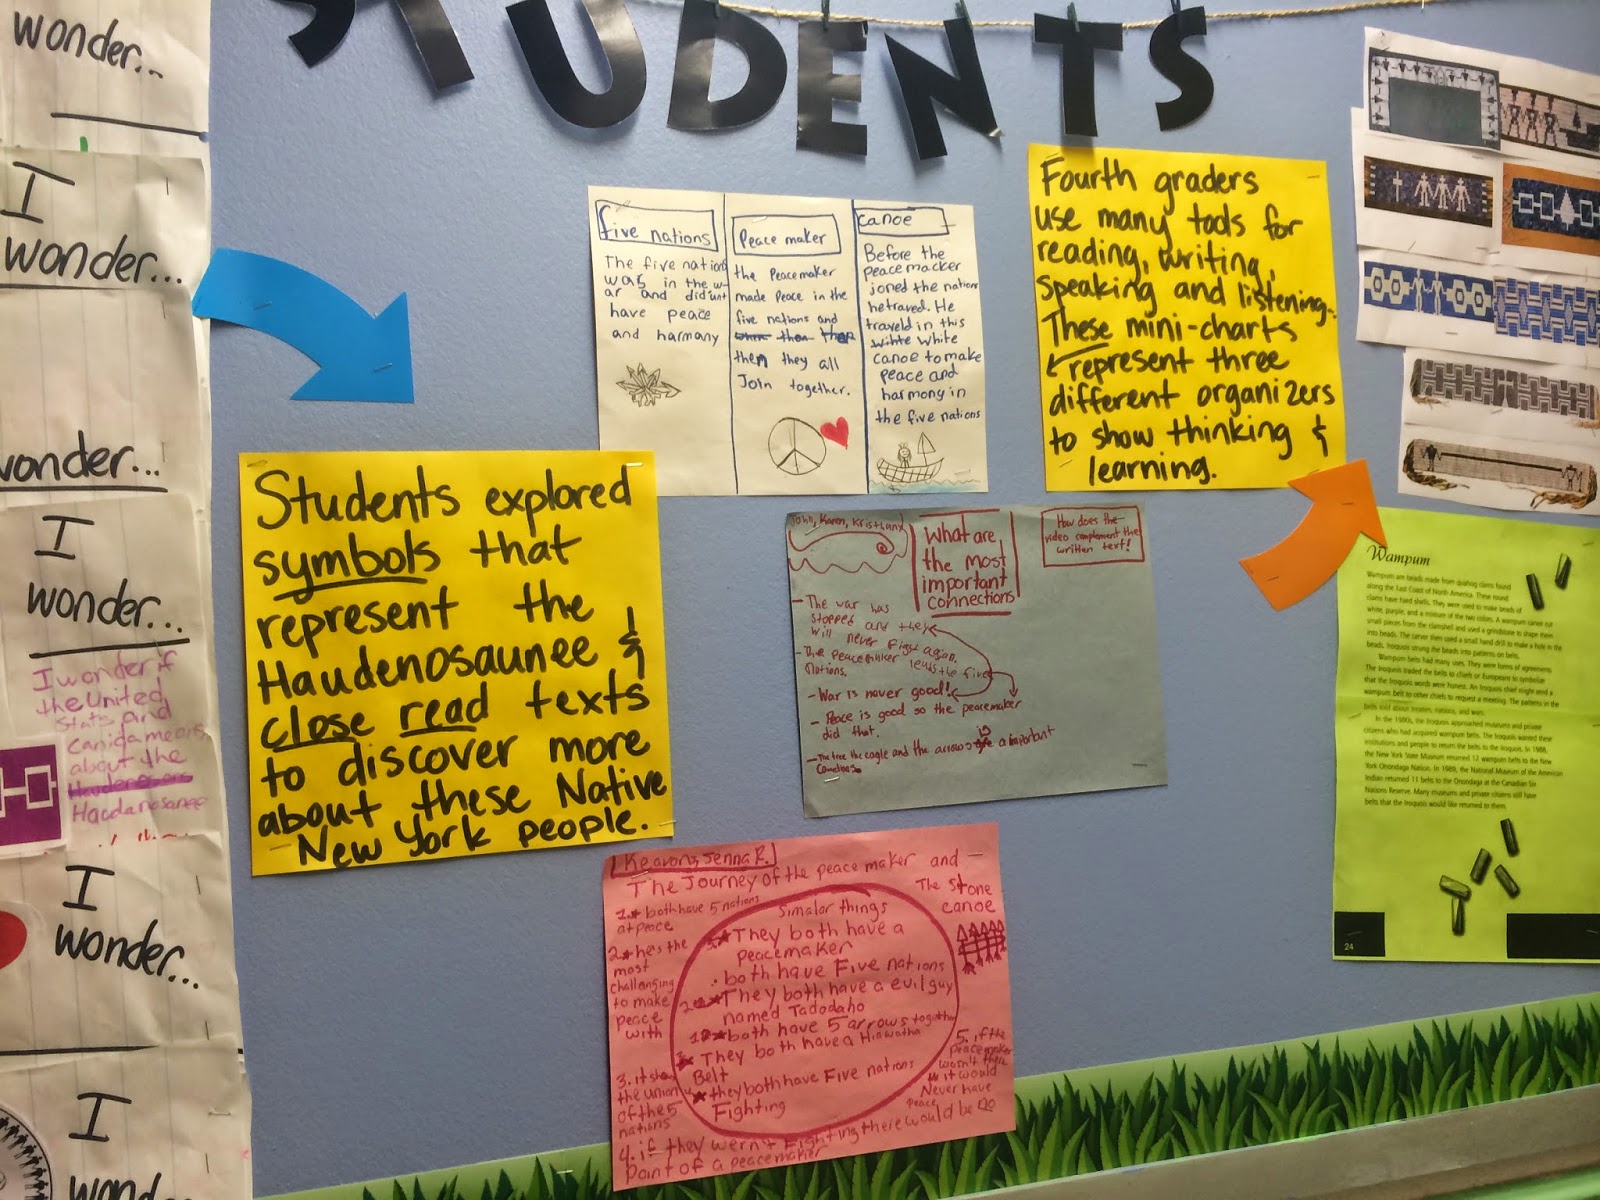 STUDENTS
wonder...
I
wonder...
wonder...
I
wonder...
I wonder if
the United
Stats and
about the
Haudanosanee
I
wonder...
I
Students explored
symbols that
represent the
Haudenosaunee &
close read texts
to discover more
about these Native
New York people.
five nations
The five nations
was in the w-
ar and did'unt
have peace
and harmany
Peace maker
the Peacemaker
made Peace in the
five nations and
then they all
Join together.
canoe
Before the
peacemacker
joned the nations
hetraved. He
traveld in this
white
canoe to make
peace and
harmony in
the five nations
Fourth graders
use many tools for
reading, writing,
speaking and listening.
These mini-charts
represent three
different organizers
to show thinking &
learning.
John, Karen,
What are
the most
important
connections
How does the
video complement the
written text!
- The war has
stopped and they
will never fight again.
- The peacemaker leads the five
nations.
- War is never good!
- Peace is good so the peacemaker
did that.
- The tree the eagle and the arrows is a important
Jenna R.
The Journey of the peacemaker and
The Stone
canoe
1. both have 5 nations
at peace
2. he's the
most
challenging
to make
peace
with
3. it
the union
of the 5
nations
Simalar things
They both have a
peacemaker
both have Five nations
They both have a evil guy
named Tadodaho
both have 5 arrows together
They both have a Hiawatha
Belt
they both have Five nations
Fighting
5. if the
peacemaker
wasn't
it would
Never have
peace
4. if they wern't Fighting there would be no
point of a peacemaker
Wampum
Wampum are beads made from quahog clams found
along the East Coast of North America. These round
clams have hard shells. They were used to make beads of
white, purple, and a mixture of the two colors. A wampum carver cut
small pieces from the clamshell and used a grindstone to shape them
into beads. The carver then used a small hand drill to make a hole in the
beads. Iroquois strung the beads into patterns on belts.
Wampum belts had many uses. They were forms of agreements.
The Iroquois traded the belts to chiefs or Europeans to symbolize
that the Iroquois words were honest. An Iroquois chief might send a
wampum belt to other chiefs to request a meeting. The patterns in the
belts told about treaties, nations, and wars.
In the 1980s, the Iroquois approached museums and private
citizens who had acquired wampum belts. The Iroquois wanted these
institutions and people to return the belts to the Iroquois. In 1988,
the New York State Museum returned 12 wampum belts to the New
York Onondaga Nation. In 1989, the National Museum of the American
Indian returned 11 belts to the Onondaga at the Canadian Six
Nations Reserve. Many museums and private citizens still have
belts that the Iroquois would like returned to them.
24